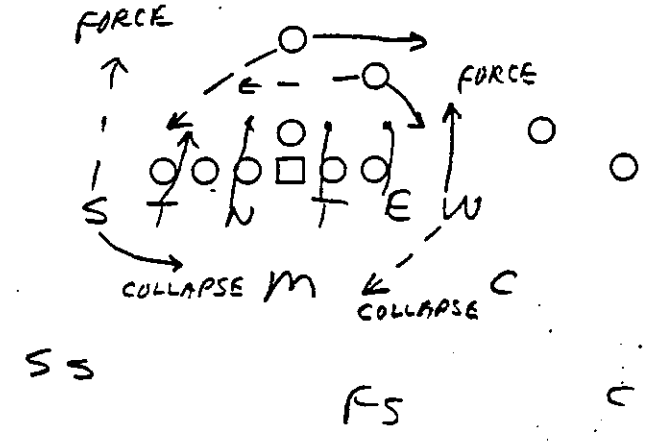 FORCE
FORCE
S T N T E W
COLLAPSE M C
COLLAPSE
SS
FS C